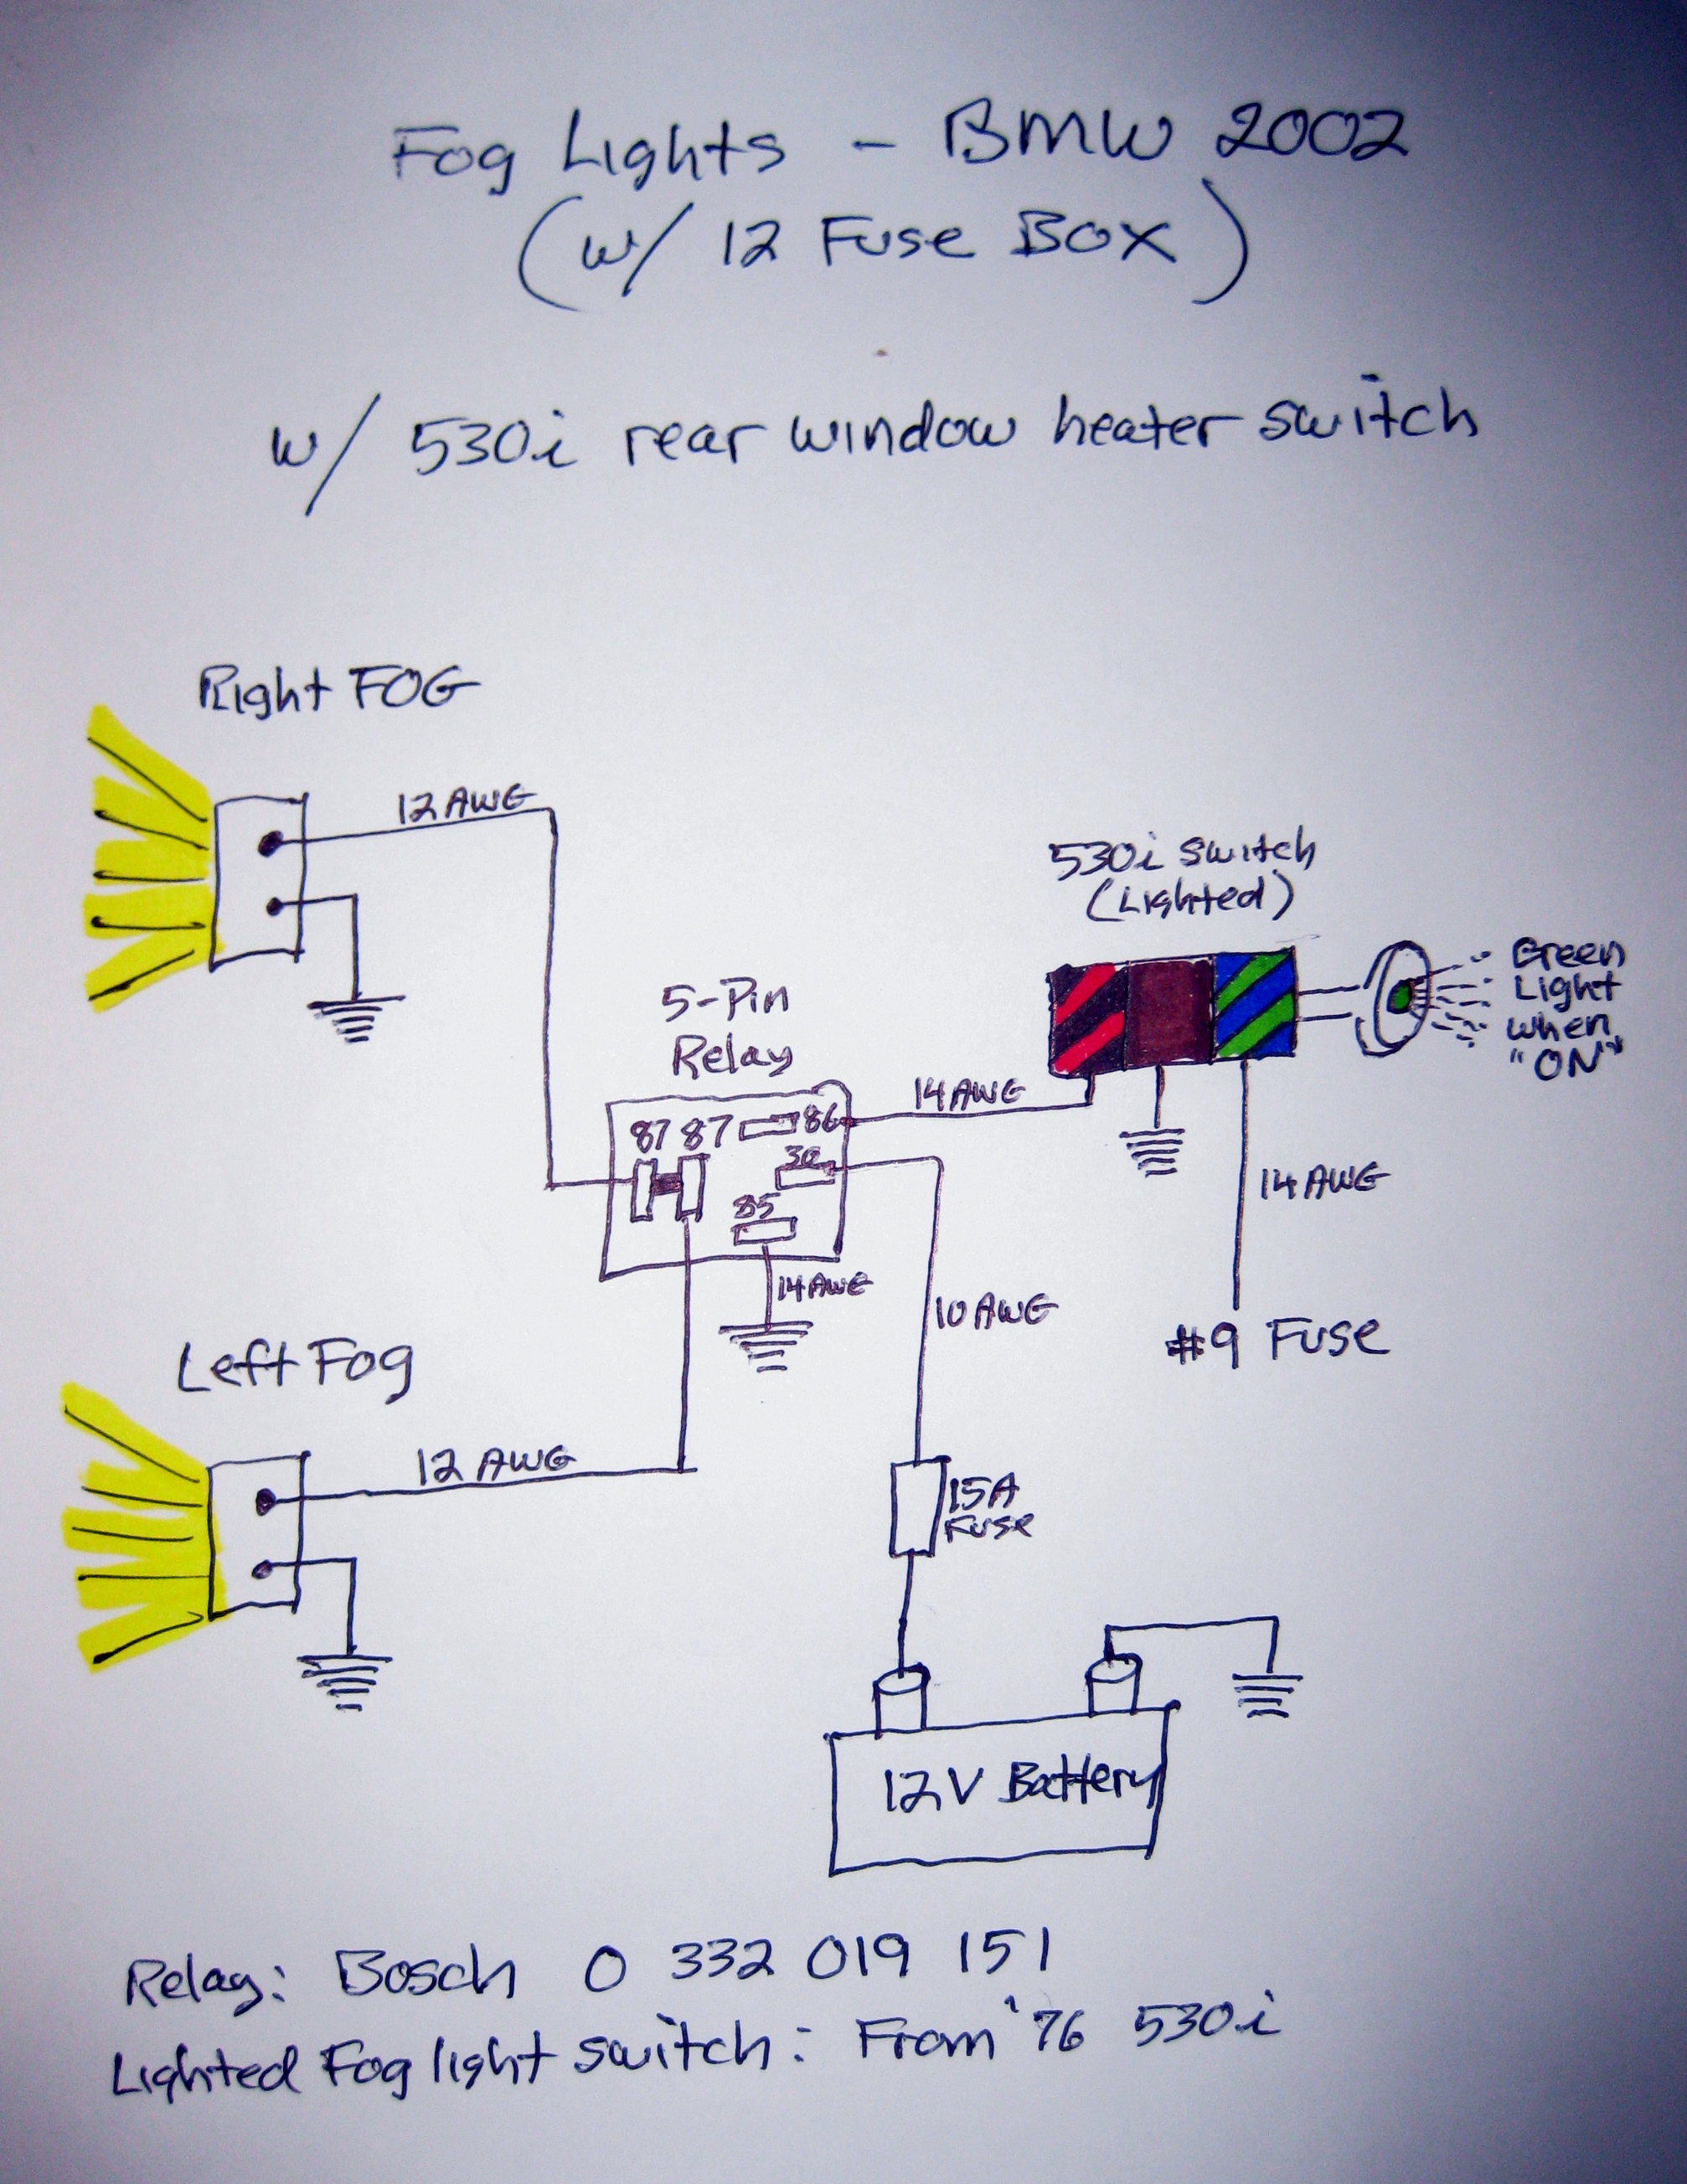 Fog Lights - BMW 2002
(w/ 12 Fuse Box)
w/ 530i rear window heater switch
Right FOG
12 AWG
530i switch
(Lighted)
Green
Light
when
"ON"
5-Pin
Relay
14 AWG
87 87 86
30
85
14 AWG
14 AWG
10 AWG
#9 Fuse
Left Fog
12 AWG
15A
Fuse
12V Battery
Relay: Bosch 0 332 019 151
Lighted Fog light switch: From '76 530i